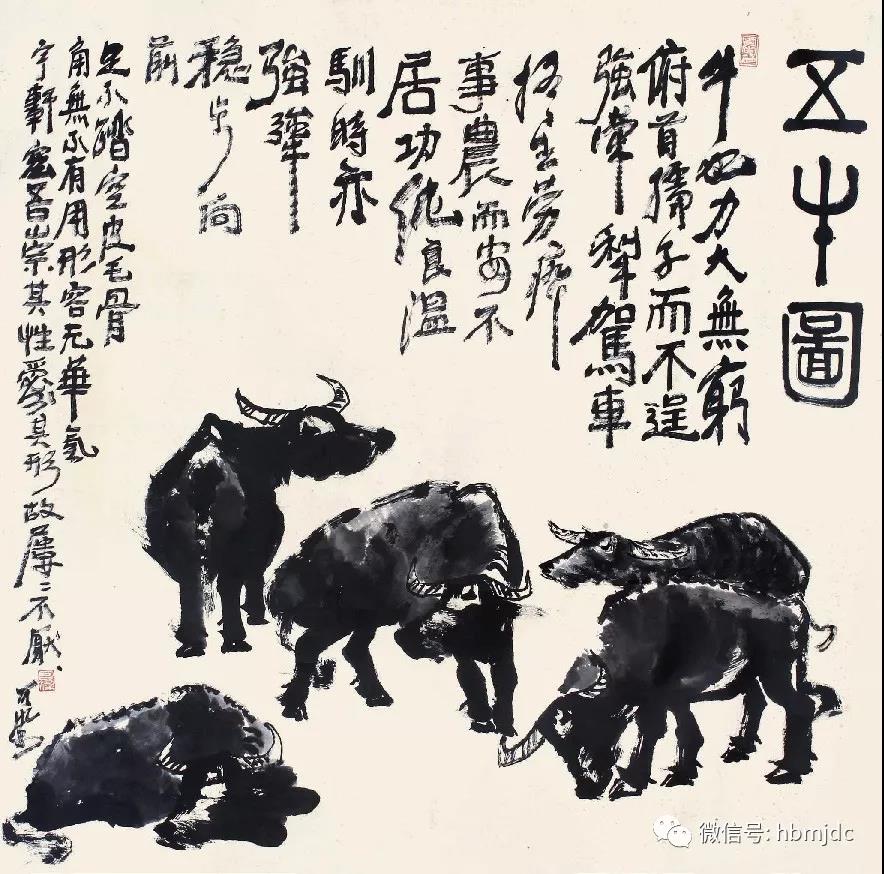 五牛圖
牛也力大無窮
俯首孺子而不逞
強常犁駕車
終生勞瘁
事農而安不
居功純良温
馴時亦
強犟
稳步向
前
足不踏空皮毛骨
角無不有用形容无華氣
宇軒宏吾崇其性愛其形故屢〻不厭
可染
微信号: hbmjdc